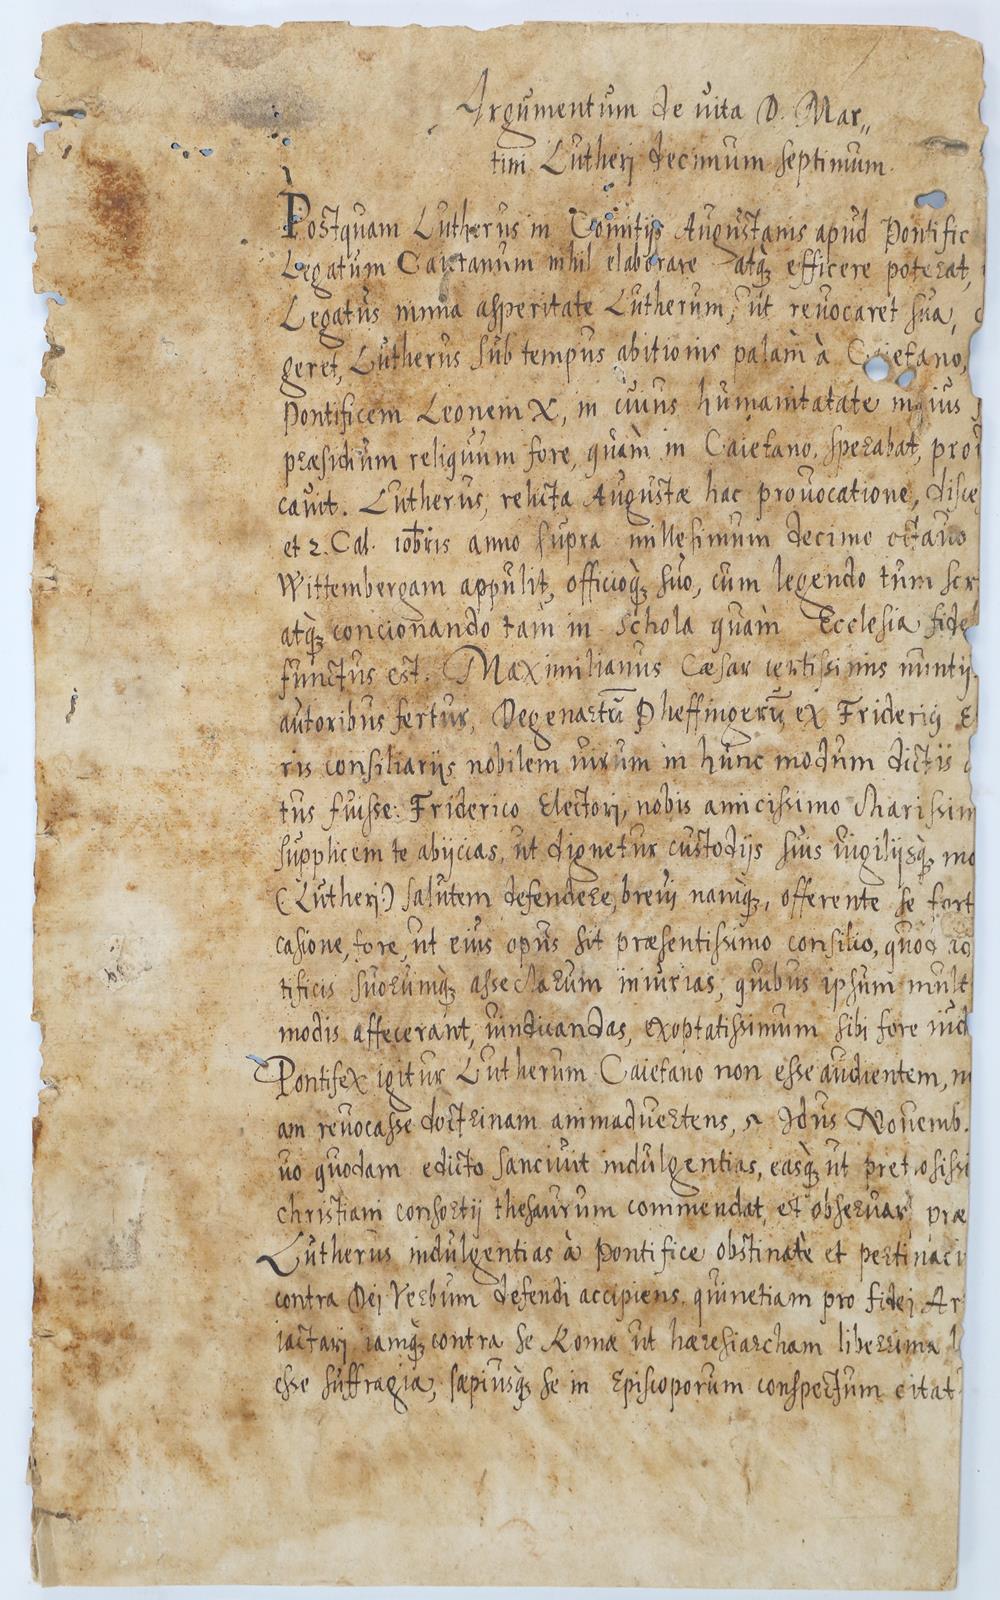 Argumentum de vita D. Mar„
tini Lutherj decimum septimum.
Postquam Lutherus in Comitijs Augustanis apud Pontific
Legatum Caietanum nihil elaborare atq; efficere poterat,
Legatus nimia asperitate Lutherum, ut reuocaret sua,
geret, Lutherus sub tempus abitionis palàm à Caietano,
Pontificem Leonem X, in cuius humanitatate
præsidium reliquum fore, quàm in Caietano, sperabat, pro
cauit. Lutherus, relicta Augustæ hac prouocatione, disce
et 2. Cal. iobris anno supra millesimum decimo octauo
Wittembergam appulit, officioq; suo, cum legendo tum scr
atq; concionando tàm in schola quàm Ecclesia fide
functus est. Maximilianus Cæsar certissimis nuntij
autoribus fertur, Degenartū Pheffingerū ex Friderici E
ris consiliarijs nobilem uirum in hunc modum dictis
tus fuisse: Friderico Electorj, nobis amicissimo charissim
supplicem te abijcias, ut dignetur custodijs suis uigilijsq; mo
(:Lutherj:) salutem defendere, breui namq;, offerente se fort
casione, fore, ut eius opus sit præsentissimo consilio, quod ad
tificis suorumq; asseclarum iniurias, quibus ipsum mult
modis affecerant, uindicandas, exoptatissimum sibi fore iud
Pontifex igitur Lutherum Caietano non esse audientem, n
am reuocasse doctrinam animaduertens, 5 Idus Nouemb.
uo quodam edicto sanciuit indulgentias, easq; ut pretiosissi
christiani consortij thesaurum commendat, et obseruari præ
Lutherus indulgentias à Pontifice obstinatè et pertinaci
contra Dej Verbum defendi accipiens, quinetiam pro fidej Ar
iactarj iamq; contra se Romæ ut hæresiarcham liberrima
esse suffragia, sæpiusq; se in Episcoporum conspectum citat